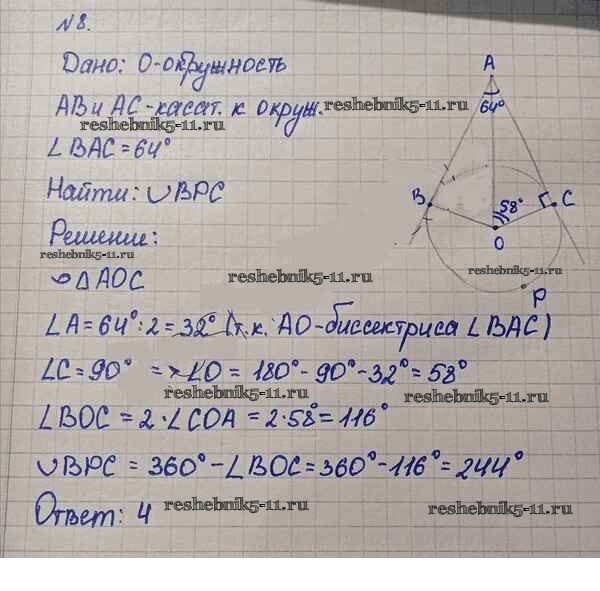 №8.
Дано: О-окружность
АВ и АС-касат. к окруж. reshebnik5-11.ru
reshebnik5-11.ru
∠ВАС = 64°
Найти: ◡ВРС
Решение:
reshebnik5-11.ru
△АОС reshebnik5-11.ru
∠А = 64°:2 = 32° (т.к. АО-биссектриса ∠ВАС)
∠С = 90° => ∠О = 180° - 90° - 32° = 58°
reshebnik5-11.ru reshebnik5-11.ru
∠ВОС = 2·∠СОА = 2·58° = 116°
◡ВРС = 360° - ∠ВОС = 360° - 116° = 244°
Ответ: 4 reshebnik5-11.ru reshebnik5-11.ru
А
64°
В
58°
С
О
reshebnik5-11.ru
Р